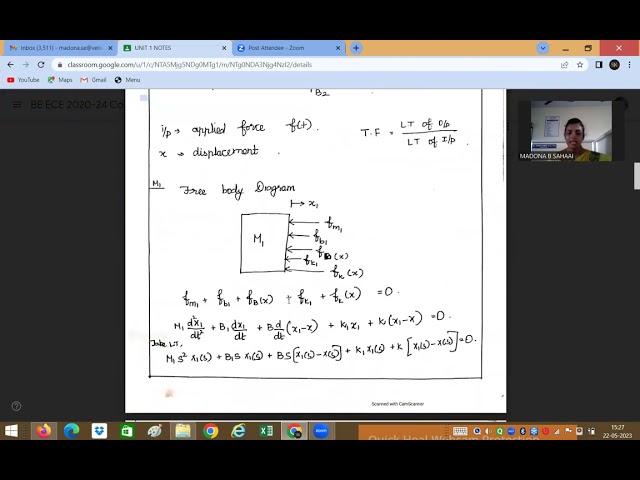 Inbox (3,511) - madona.se@vels
UNIT 1 NOTES
Post Attendee - Zoom
classroom.google.com/u/1/c/NTA5Mjg5NDg0MTg1/m/NTg0NDA3Njg4NzI2/details
YouTube
Maps
Gmail
Menu
BE ECE 2020-24 Co
B2
i/p → applied force f(t).
x → displacement.
T.F = LT of O/p
LT of I/p
MADONA B SAHAAI
M1
Free body Diagram
↦ x1
M1
fm1
fb1
fB(x)
fk1
fk(x)
fm1 + fb1 + fB(x) + fk1 + fk(x) = 0.
M1 d²x1/dt² + B1 dx1/dt + B d/dt (x1-x) + K1x1 + K(x1-x) = 0.
Take LT,
M1 S² X1(s) + B1S X1(s) + BS [X1(s) - X(s)] + K1 X1(s) + K [X1(s) - X(s)] = 0.
Scanned with CamScanner
15:27
22-05-2023